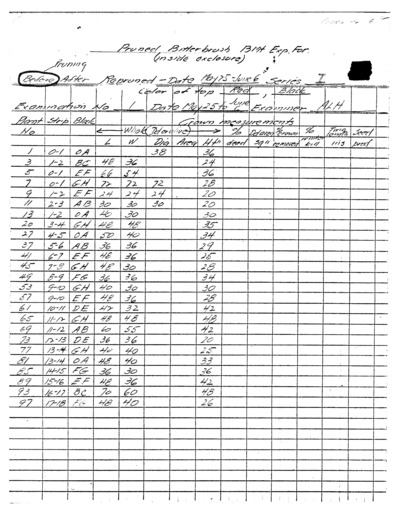 Pruned Bitterbrush Exp. For.
(inside exclosure)
Pruning
Before After Repruned - Date May 25 - June 6 Series I
Color of tag Red, Black
Examination No 1 Date May 25 to June 6 Examiner ALH
Plant Strip Block Crown measurements
No Width % % %
L W Dia Area Ht dead
1 0-1 OA 38 36
3 1-2 BC 48 36 24
5 0-1 EF 66 54 36
7 0-1 GH 72 72 72 28
9 1-2 EF 24 24 24 20
11 2-3 AB 30 30 30 20
13 1-2 OA 40 30 30
20 3-4 GH 48 48 35
27 4-5 OA 50 40 34
37 5-6 AB 36 36 29
41 6-7 EF 48 36 25
45 7-8 GH 48 30 28
49 8-9 FG 36 36 34
53 9-10 GH 40 30 30
57 9-10 EF 48 36 28
61 10-11 DE 42 32 42
65 11-12 GH 48 48 48
69 11-12 AB 60 55 42
73 12-13 DE 36 36 20
77 13-4 GH 40 40 25
81 13-14 OA 48 40 33
85 14-15 FG 36 30 36
89 15-16 EF 48 36 42
93 16-17 BC 70 60 48
97 17-18 FG 48 40 26